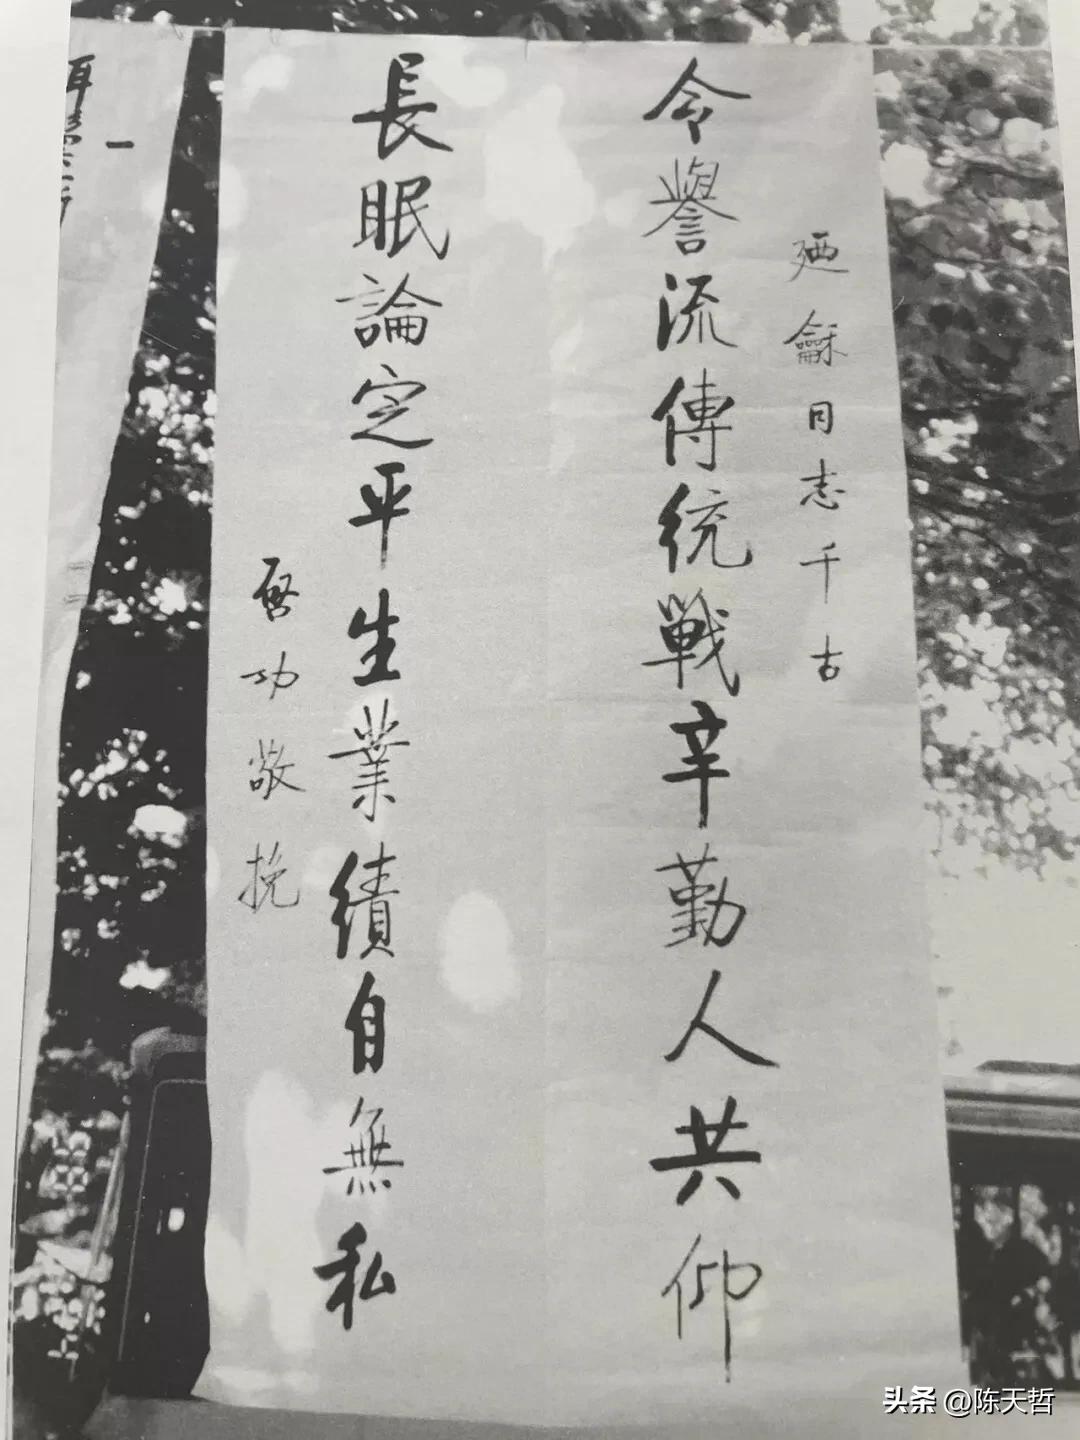 廼龢同志千古
令譽流傳統戰辛勤人共仰
長眠論定平生業績自無私
啓功敬挽
头条 @陈天哲